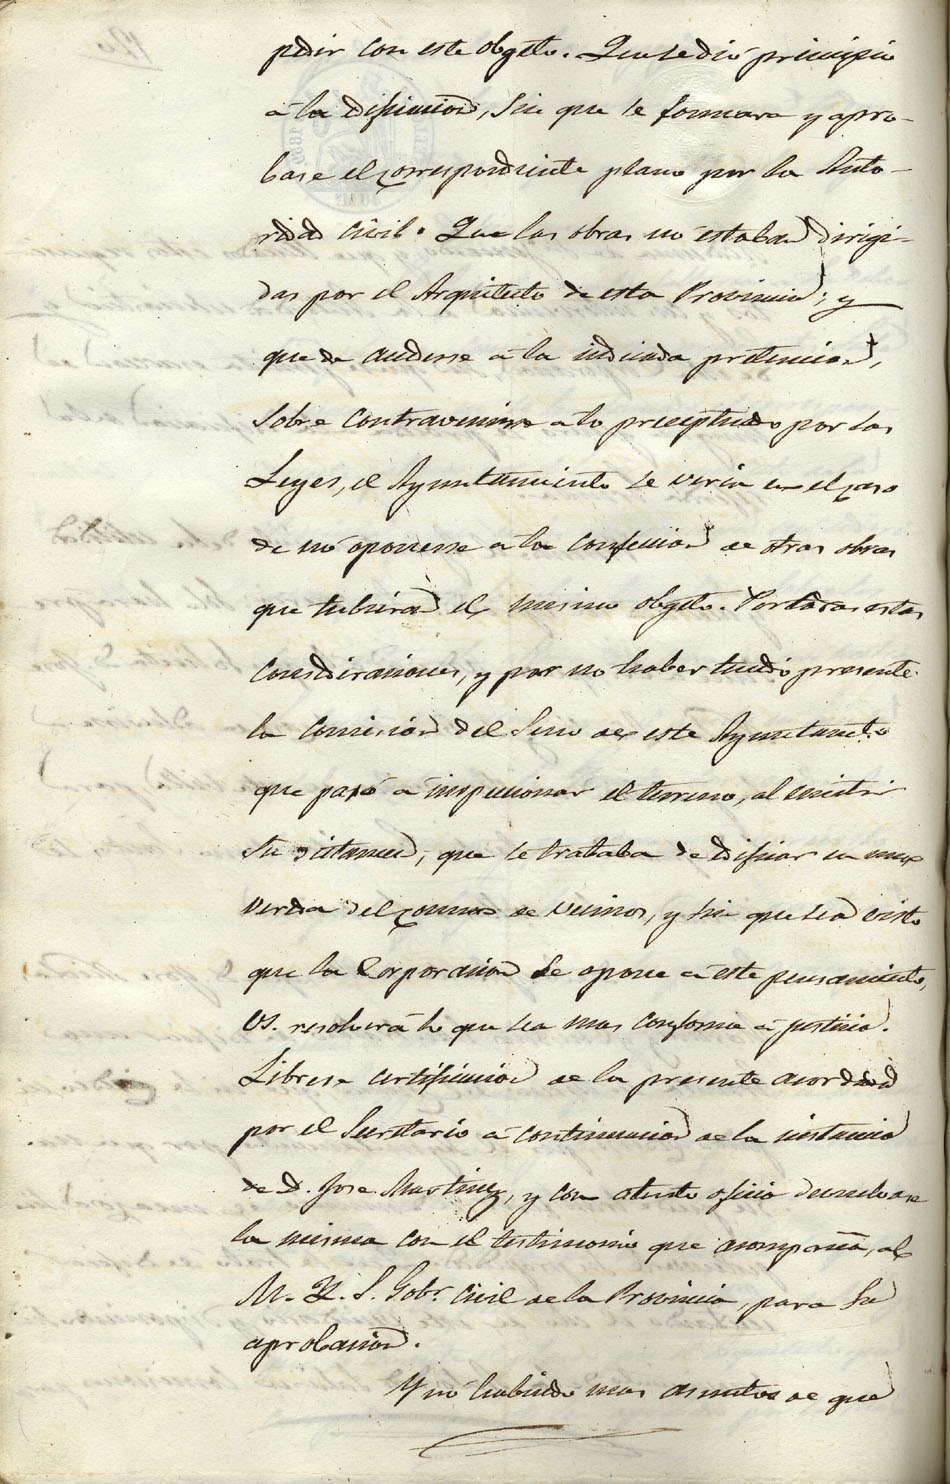 pedir con este obgeto. Que se dió principio
á la edificacion, sin que se formara y apro-
base el correspondiente plano por la Auto-
ridad Civil. Que las obras no estaban dirigi-
das por el Arquitecto de esta Provincia; y
que de accederse á la indicada pretencion,
sobre contravenirse a lo preceptuado por las
Leyes, el Ayuntamiento se veria en el caso
de nó oponerse a la confeccion de otras obras
que tubieran el mismo obgeto. Por todas estas
considiraciones, y por no haber tenido presente
la comision del Seno de este Ayuntamto
que pasó á inspeccionar el terreno, al emitir
su dictamen, que se trataba de edificar en una
vereda del comun de vecinos, y sin que sea visto
que la Corporacion se opone á este pensamiento,
VS. resolverá lo que sea mas conforme á justicia.
Librese certificacion de la presente acordada
por el Secretario á continuacion de la instancia
de D. Jose Martinez, y con atento oficio devuelvase
la misma con el testimonio que acompaña, al
M. Y. S. Gobr. Civil de la Provincia, para su
aprobacion.
Y nó habiendo mas asuntos de que